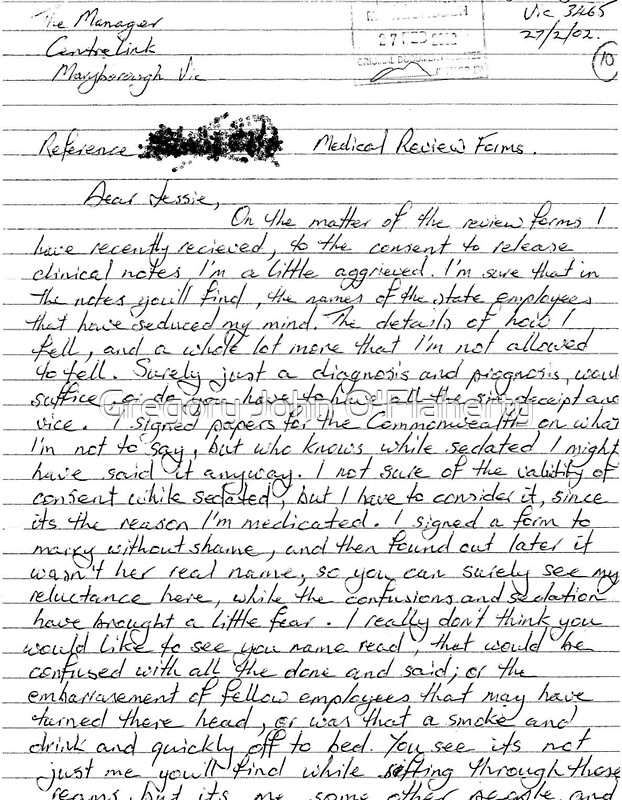 The Manager
Centrelink
Maryborough Vic
Vic 3465
27/2/02.
27 FEB 2002
10
Reference
Medical Review Forms.
Dear Jessie,
On the matter of the review forms I
have recently recieved, to the consent to release
clinical notes, I'm a little aggrieved. I'm sure that in
the notes you'll find, the names of the state employees
that have seduced my mind. The details of how I
fell, and a whole lot more that I'm not allowed
to tell. Surely just a diagnosis and prognosis, would
suffice, or do you have to have all the sin, deceipt and
vice. I signed papers for the Commonwealth on what
I'm not to say, but who knows while sedated I might
have said it anyway. I not sure of the validity of
consent while sedated, but I have to consider it, since
its the reason I'm medicated. I signed a form to
marry without shame, and then found out later it
wasn't her real name, so you can surely see my
reluctance here, while the confusions and sedation
have brought a little fear. I really don't think you
would like to see you name read, that would be
confused with all the done and said; or the
embarrasement of fellow employees that may have
turned there head, or was that a smoke and
drink and quickly off to bed. You see its not
just me you'll find while sifting through these
reams, but its me, some other people and
Gregory John O'Flaherty